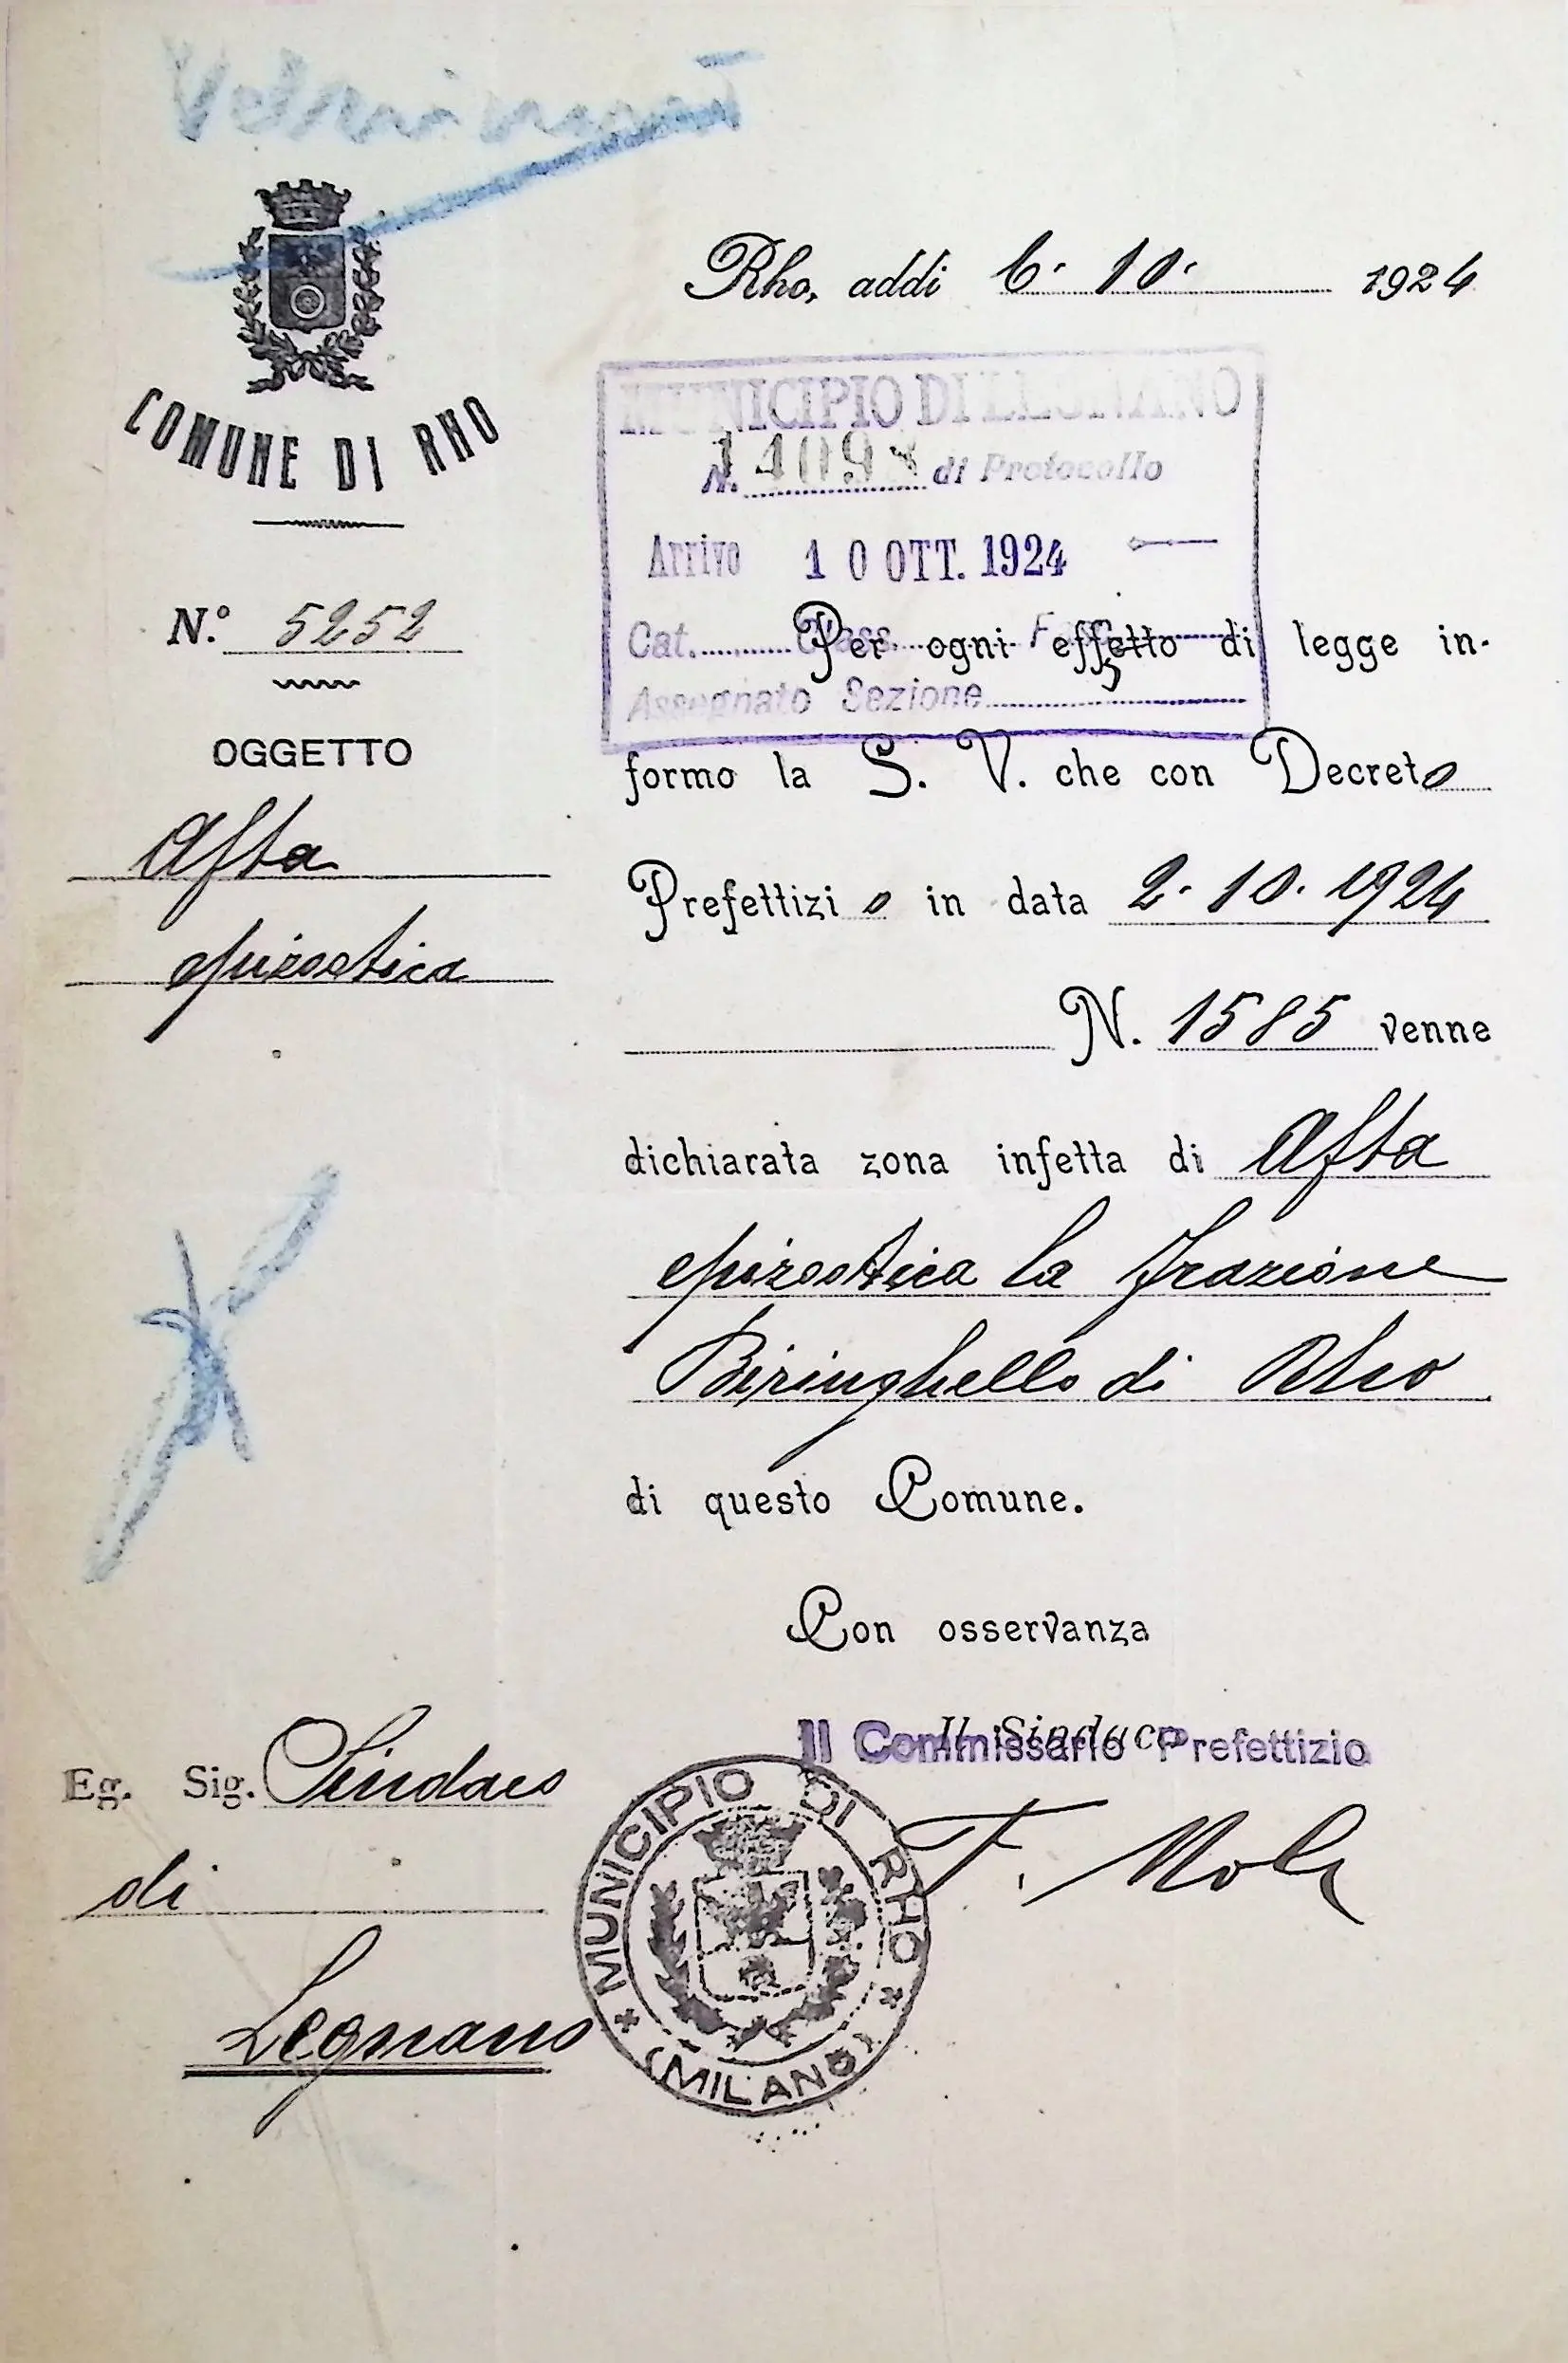 COMUNE DI RHO
Rho, addi 6. 10. 1924
MUNICIPIO DI LEGNANO
N. di Protocollo
Arrivo 10 OTT. 1924
Cat. Class. F
Assegnato Sezione
N.° 5252
OGGETTO
Afta
epizootica
Per ogni effetto di legge in-
formo la S. V. che con Decreto
Prefettizio in data 2. 10. 1924
N. 1585 venne
dichiarata zona infetta di Afta
epizootica la frazione
Biringhello di Rho
di questo Comune.
Con osservanza
Il Sindaco
Il Commissario Prefettizio
Eg. Sig. Sindaco
di
Legnano
* MUNICIPIO DI RHO *
(MILANO)